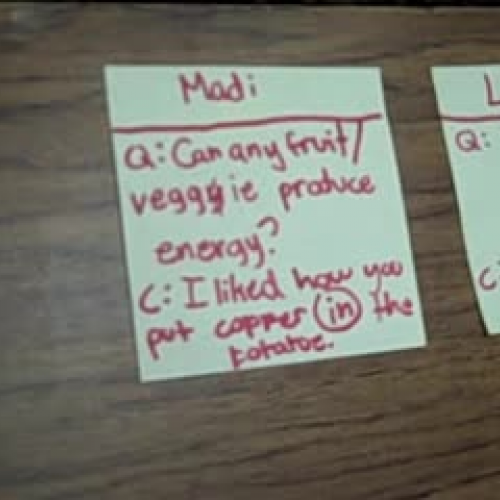 Madi
Q: Can any fruit/
veggie produce
energy?
C: I liked how you
put copper in the
potatoe.
L
Q:
C: